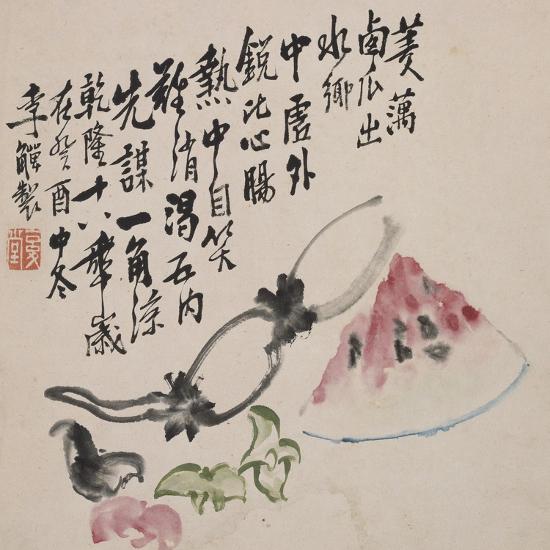 菱藕
西瓜出
水鄉
中虛外
銳比心腸
熱中自笑
難消渴五內
先謀一角涼
乾隆十八年歲
在癸酉中冬
李鱓製